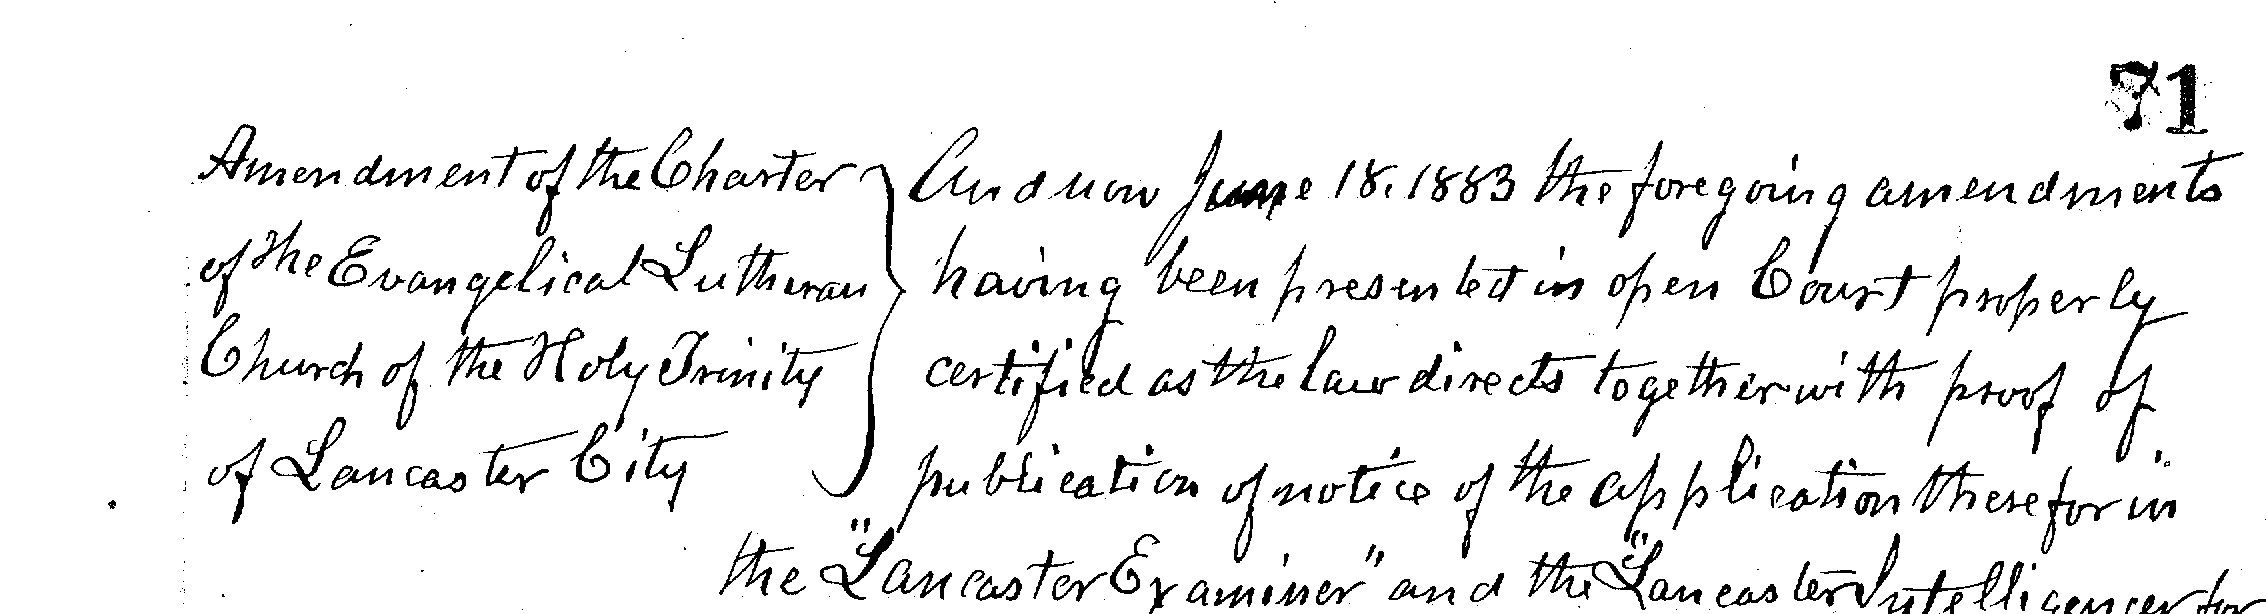 71
Amendment of the Charter
of the Evangelical Lutheran
Church of the Holy Trinity
of Lancaster City
And now June 18. 1883 the foregoing amendments
having been presented in open Court properly
certified as the law directs together with proof of
publication of notice of the application therefor in
the "Lancaster Examiner" and the "Lancaster Intelligencer for